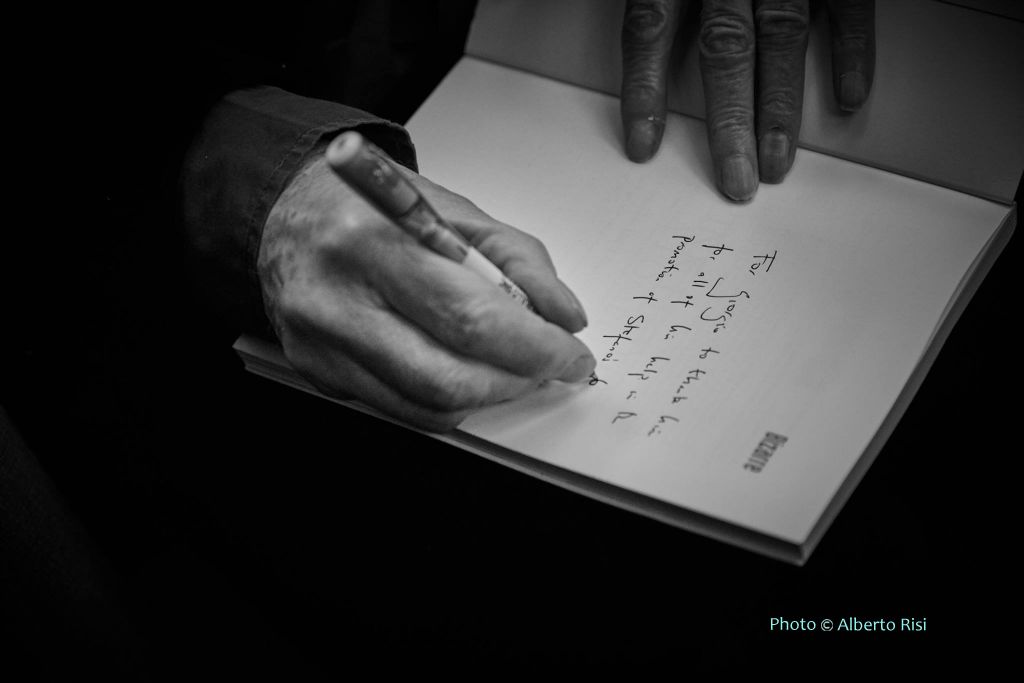 Bizarre
For Giorgio to thank him
for all of his help in the
promotion of
Photo © Alberto Risi